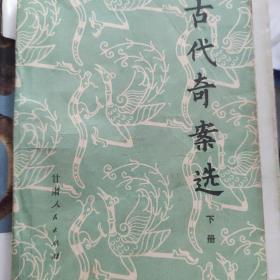 古代奇案选
下册
甘肃人民出版社